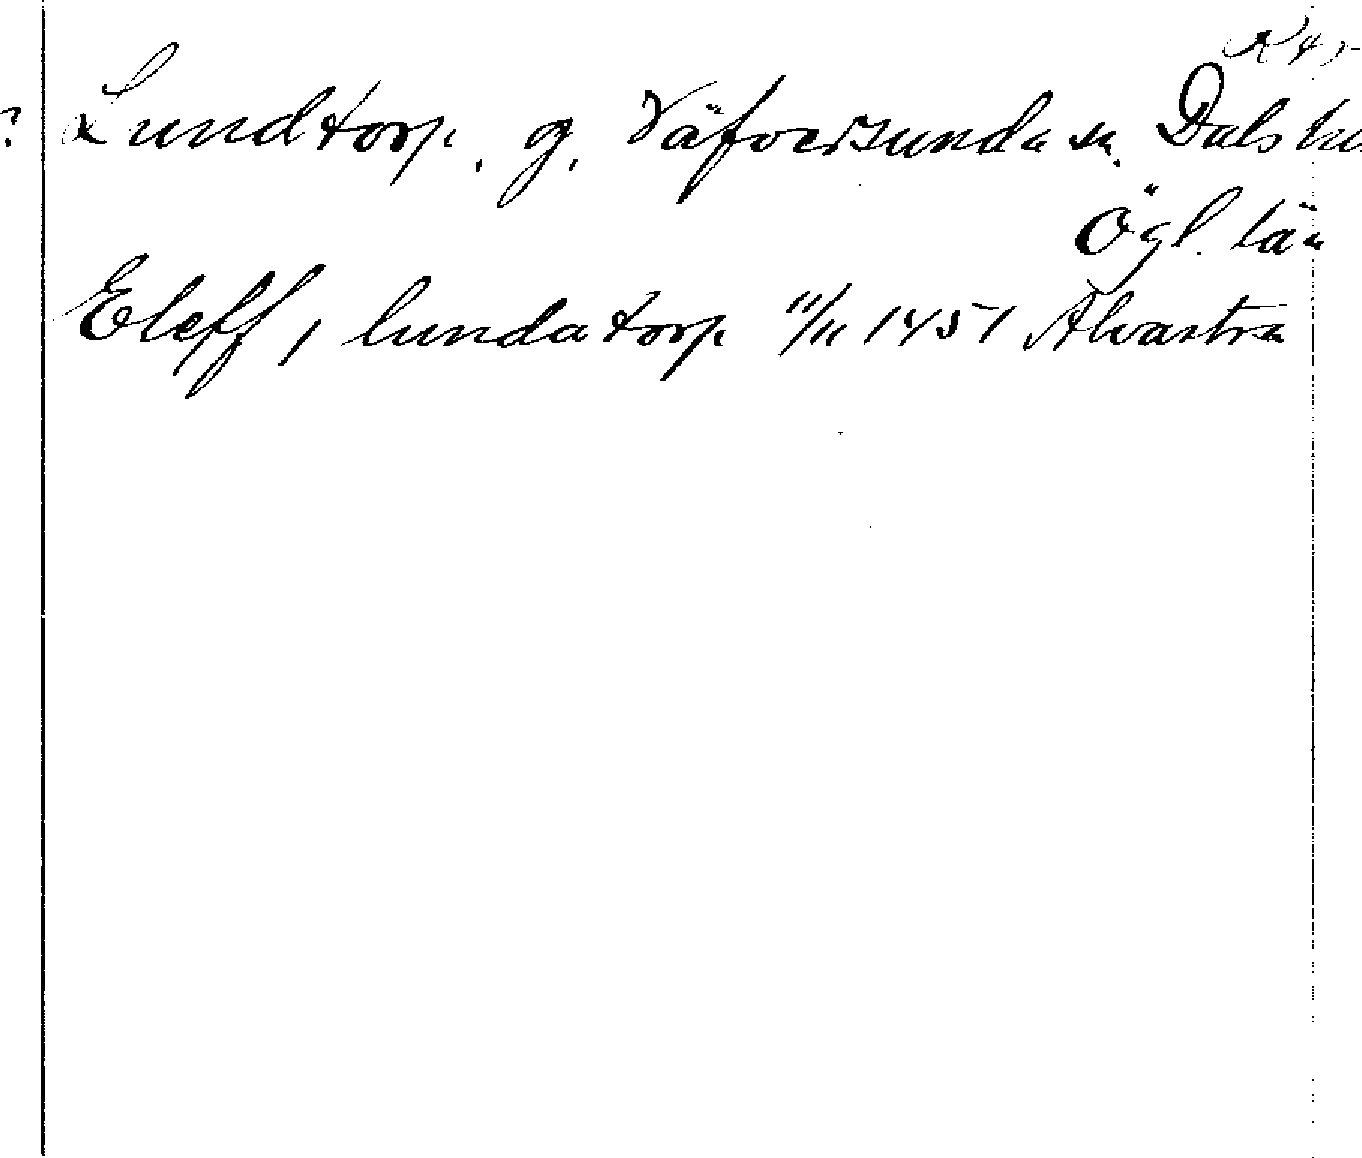 ? Lundtorp. g. Väfversunda sn. Dals hd
Ögl. län
Eleff i lundatorp 11/11 1451 Alvastra